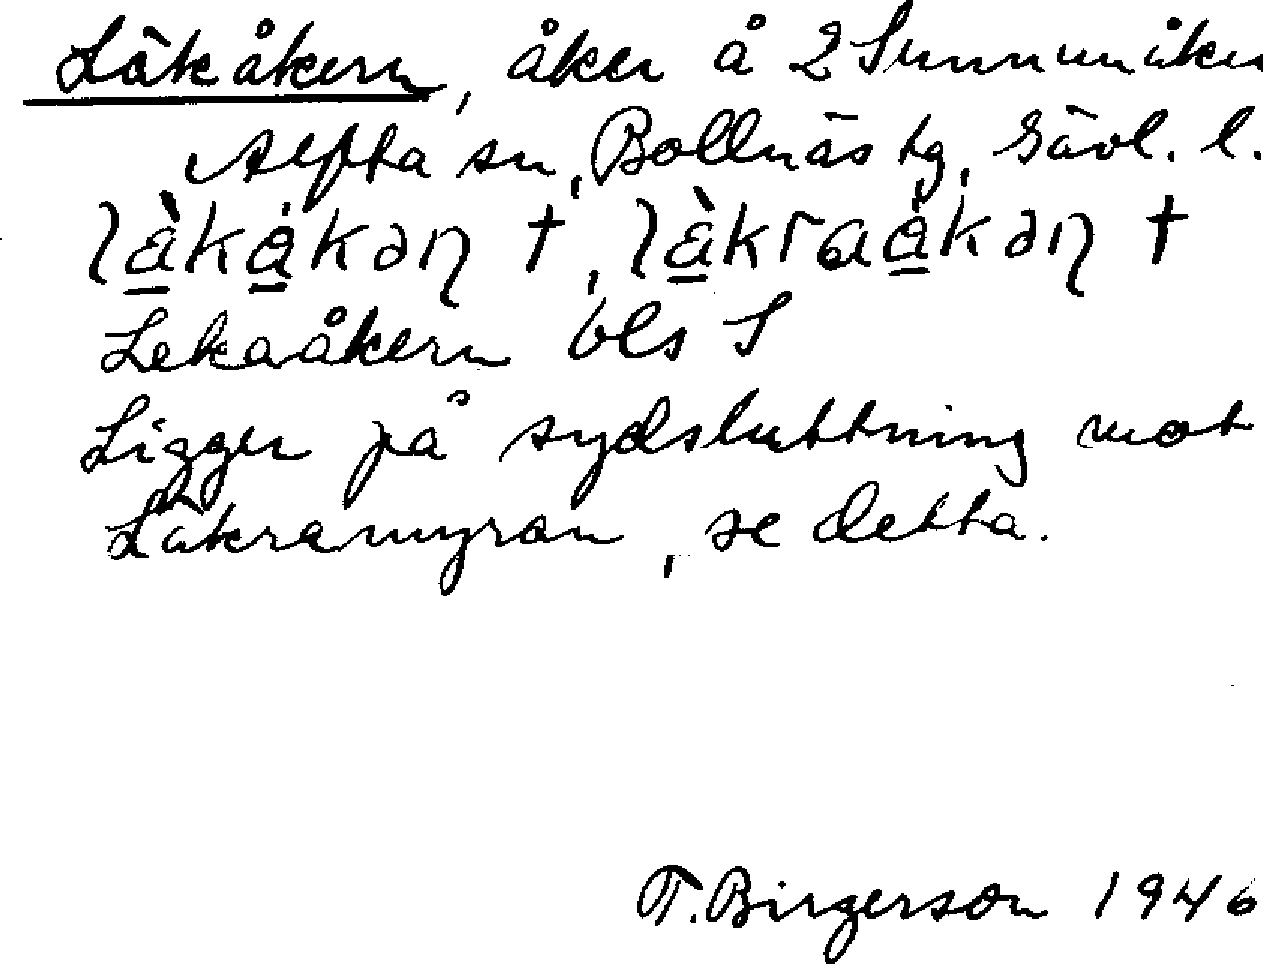 Läkåkern, åker å 2 Sunnanåker
Alfta sn, Bollnäs tg, Gävl. l.
Lekaåkern bls S
Ligger på sydsluttning mot
Läkramyran, se detta.
T. Birgerson 1946